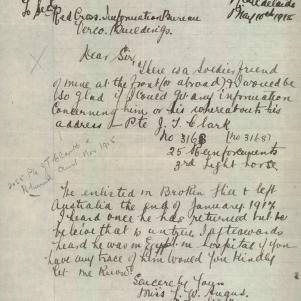 To Sec
Red Cross Information Bureau
Verco Buildings.
Adelaide
May 10th 1918
Dear Sir,
There is a Soldier friend
of mine at the front (or abroad) & I would be
so glad if I could get any information
concerning him or his whereabouts his
address — Pte J. T. Clark
no 3168 (no 3168)
25 Reinforcements
3rd Light Horse
He enlisted in Broken Hill & left
Australia the end of January 1917
I heard once he has returned but
beleive that is untrue I afterwards
heard he was in Egypt in hospital if you
have any trace of him would you kindly
let me know
Sincerely Yours
Miss J. W. Angus.